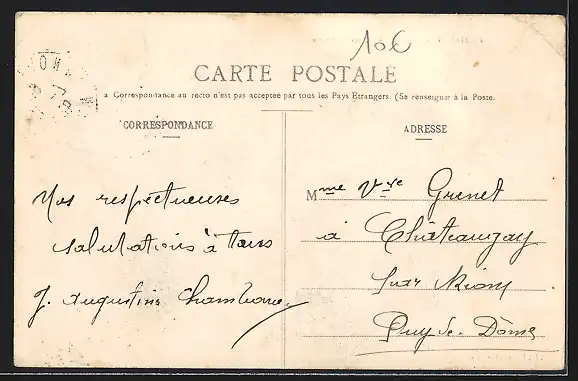 10€
CARTE POSTALE
a Correspondance au recto n'est pas acceptée par tous les Pays Etrangers. (Se renseigner à la Poste.
CORRESPONDANCE
ADRESSE
Nos respectueuses
salutations à tous
J. Augustine
Mme Vve Grenet
à Châteaugay
par Riom
Puy-de-Dôme